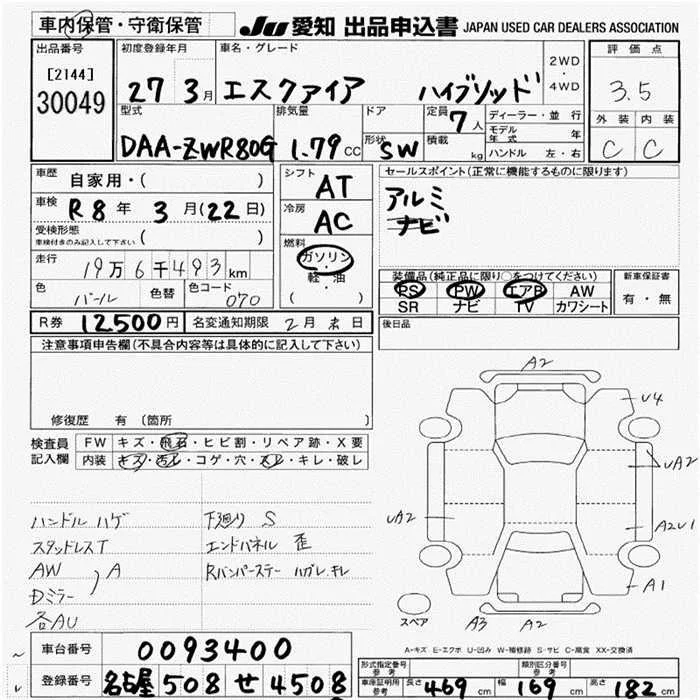 車内保管・守衛保管 JU 愛知 出品申込書 JAPAN USED CAR DEALERS ASSOCIATION
出品番号 初度登録年月 車名・グレード 2WD・4WD 評価点
[2144] 30049 27 3月 エスクァイア ハイブリッド 3.5
型式 排気量 ドア 定員 7人 ディーラー・並行 外装 内装
DAA-ZWR80G 1.79 CC 形状 SW 積載 kg モデル年式 年 C C
ハンドル 左・右
車歴 自家用・( ) シフト AT セールスポイント(正常に機能するものに限ります)
車検 R8年 3月(22日) 冷房 AC アルミ
受検形態 車検付きのみ記入して下さい ( ) ナビ
燃料 ガソリン・軽・油 ( )
走行 19万6千493km
色 パール 色替 色コード 070
装備品(純正品に限り○をつけてください) 新車保証書
PS PW エアB AW 有・無
SR ナビ TV カワシート
R券 12,500円 名変通知期限 2月末日 後日品
注意事項申告欄(不具合内容等は具体的に記入して下さい)
修復歴 有(箇所 )
検査員記入欄 FW キズ・飛石・ヒビ割・リペア跡・X要
内装 キズ・汚レ・コゲ・穴・スレ・キレ・破レ
ハンドル ハゲ 下廻り S
スタッドレスT エンドパネル 歪
AW A Rバンパーステー ハガレ、キレ
Dミラー
各AU
A2
U4
UA2
UA2
A2U1
A1
A3 A2
スペア
A-キズ E-エクボ U-凹み W-補修跡 S-サビ C-腐食 XX-交換済
車台番号 0093400
登録番号 名古屋 508 せ 4508
形式指定番号 参考 類別区分番号 参考
車庫証明用 参考 長さ 469cm 幅 169cm 高さ 182cm